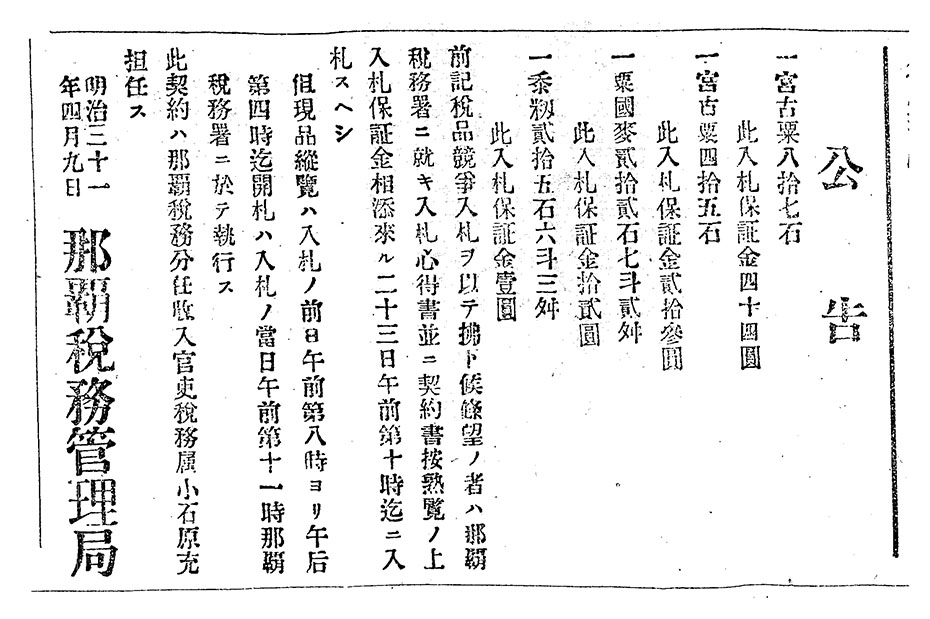 公告
一宮古粟八拾七石
此入札保証金四十四圓
一宮古粟四拾五石
此入札保証金貳拾參圓
一粟國麥貳拾貳石七斗貳舛
此入札保証金拾貳圓
一黍籾貳拾五石六斗三舛
此入札保証金壹圓
前記税品競爭入札ヲ以テ拂下候條望ノ者ハ那覇
税務署ニ就キ入札心得書並ニ契約書按熟覽ノ上
入札保証金相添來ル二十三日午前第十時迄ニ入
札スヘシ
但現品縱覽ハ入札ノ前日午前第八時ヨリ午后
第四時迄開札ハ入札ノ當日午前第十一時那覇
税務署ニ於テ執行ス
此契約ハ那覇税務分任收入官吏税務属小石原充
担任ス
明治三十一
年四月九日
那覇税務管理局